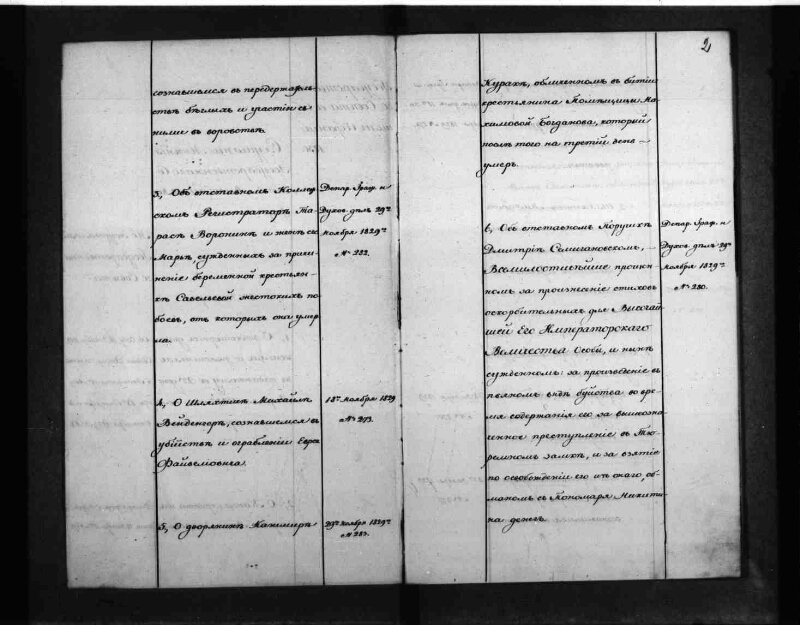 сознавшемся въ передержатель-
ствѣ бѣглыхъ и участіи съ
ними въ воровствѣ.
3, Объ отставномъ Коллеж-
скомъ Регистраторѣ Та-
расѣ Воронинѣ и женѣ его
Марьѣ, сужденныхъ за причи-
неніе беременной крестьян-
кѣ Савельевой жестокихъ по-
боевъ, отъ которыхъ она умер-
ла.
Депар. Граж. и
Духов. дѣлъ 29го
Ноября 1829го
№ 282.
4, О Шляхтичѣ Михайлѣ
Вейденгорѣ, сознавшемся въ
убійствѣ и ограбленіи Еврея
Файвеловича.
18го Ноября 1829
№ 273.
5, О дворянинѣ Казимирѣ
29го Ноября 1829го
№ 283.
2
Курахѣ, обличенномъ въ битіи
крестьянина Помѣщицы На-
химовой Богданова, который
послѣ того на третій день
умеръ.
6, Объ отставномъ Порутчикѣ
Дмитріѣ Семигановскомъ,
Всемилостивѣйше прощен-
номъ за произнесеніе стиховъ
оскорбительныхъ для Высочай-
шей Его Императорскаго
Величества Особы, и нынѣ
сужденномъ: за произведеніе въ
пьяномъ видѣ буйства во вре-
мя содержанія его за вышеозна-
ченное преступленіе въ Тю-
ремномъ замкѣ, и за взятіе
по освобожденіи его изъ онаго, об-
маномъ съ Пономаря Никити-
на денегъ.
Депар. Граж. и
Духов. дѣлъ 29го
Ноября 1829го
№ 280.